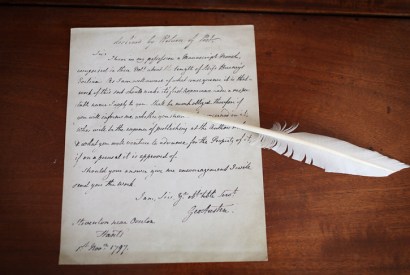 declined by Return of Post
Sir
I have in my possession a Manuscript Novel,
comprised in three Vols. about the length of Miss Burney's
Evelina. As I am well aware of what consequence it is that a
work of this sort should make its first appearance under a respec-
table name I apply to you. Shall be much obliged therefore if
you will inform me whether you in it;
What will be the expense of publishing at the Author's
& what you will venture to advance for the Property of it,
if on a perusal it is approved of.
Should your answer give me encouragement I will
send you the Work.
I am, Sir, Yr. obt. hble Servt.
Geo Austen
Steventon near Overton
Hants
1st Novr. 1797.